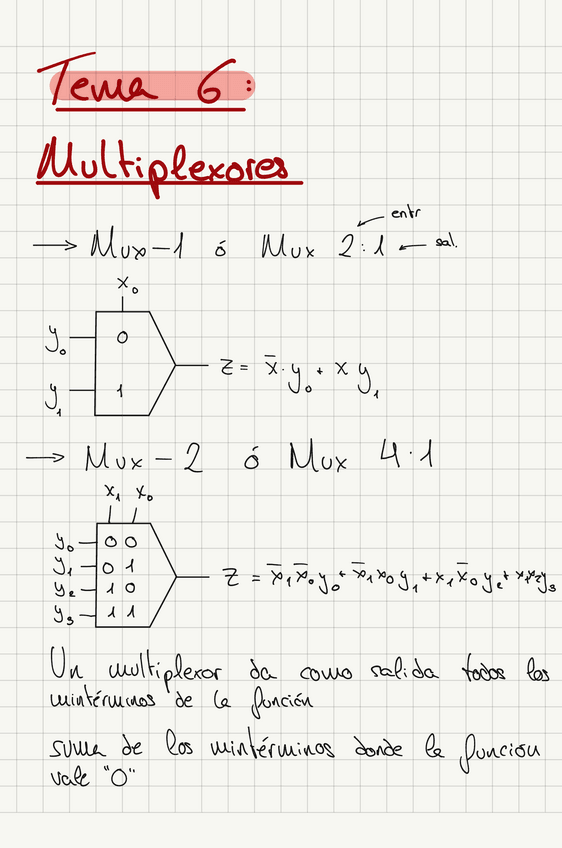 Tema 6:
Multiplexores
entr
→ Mux-1 ó Mux 2:1 ← sal.
x₀
y₀ 0
z = x̄·y₀ + x y₁
y₁ 1
→ Mux-2 ó Mux 4·1
x₁ x₀
y₀ 0 0
y₁ 0 1
z = x̄₁x̄₀y₀ + x̄₁x₀y₁ + x₁x̄₀y₂ + x₁x₂y₃
y₂ 1 0
y₃ 1 1
Un multiplexor da como salida todos los
mintérminos de la función
suma de los mintérminos donde la función
vale "0"